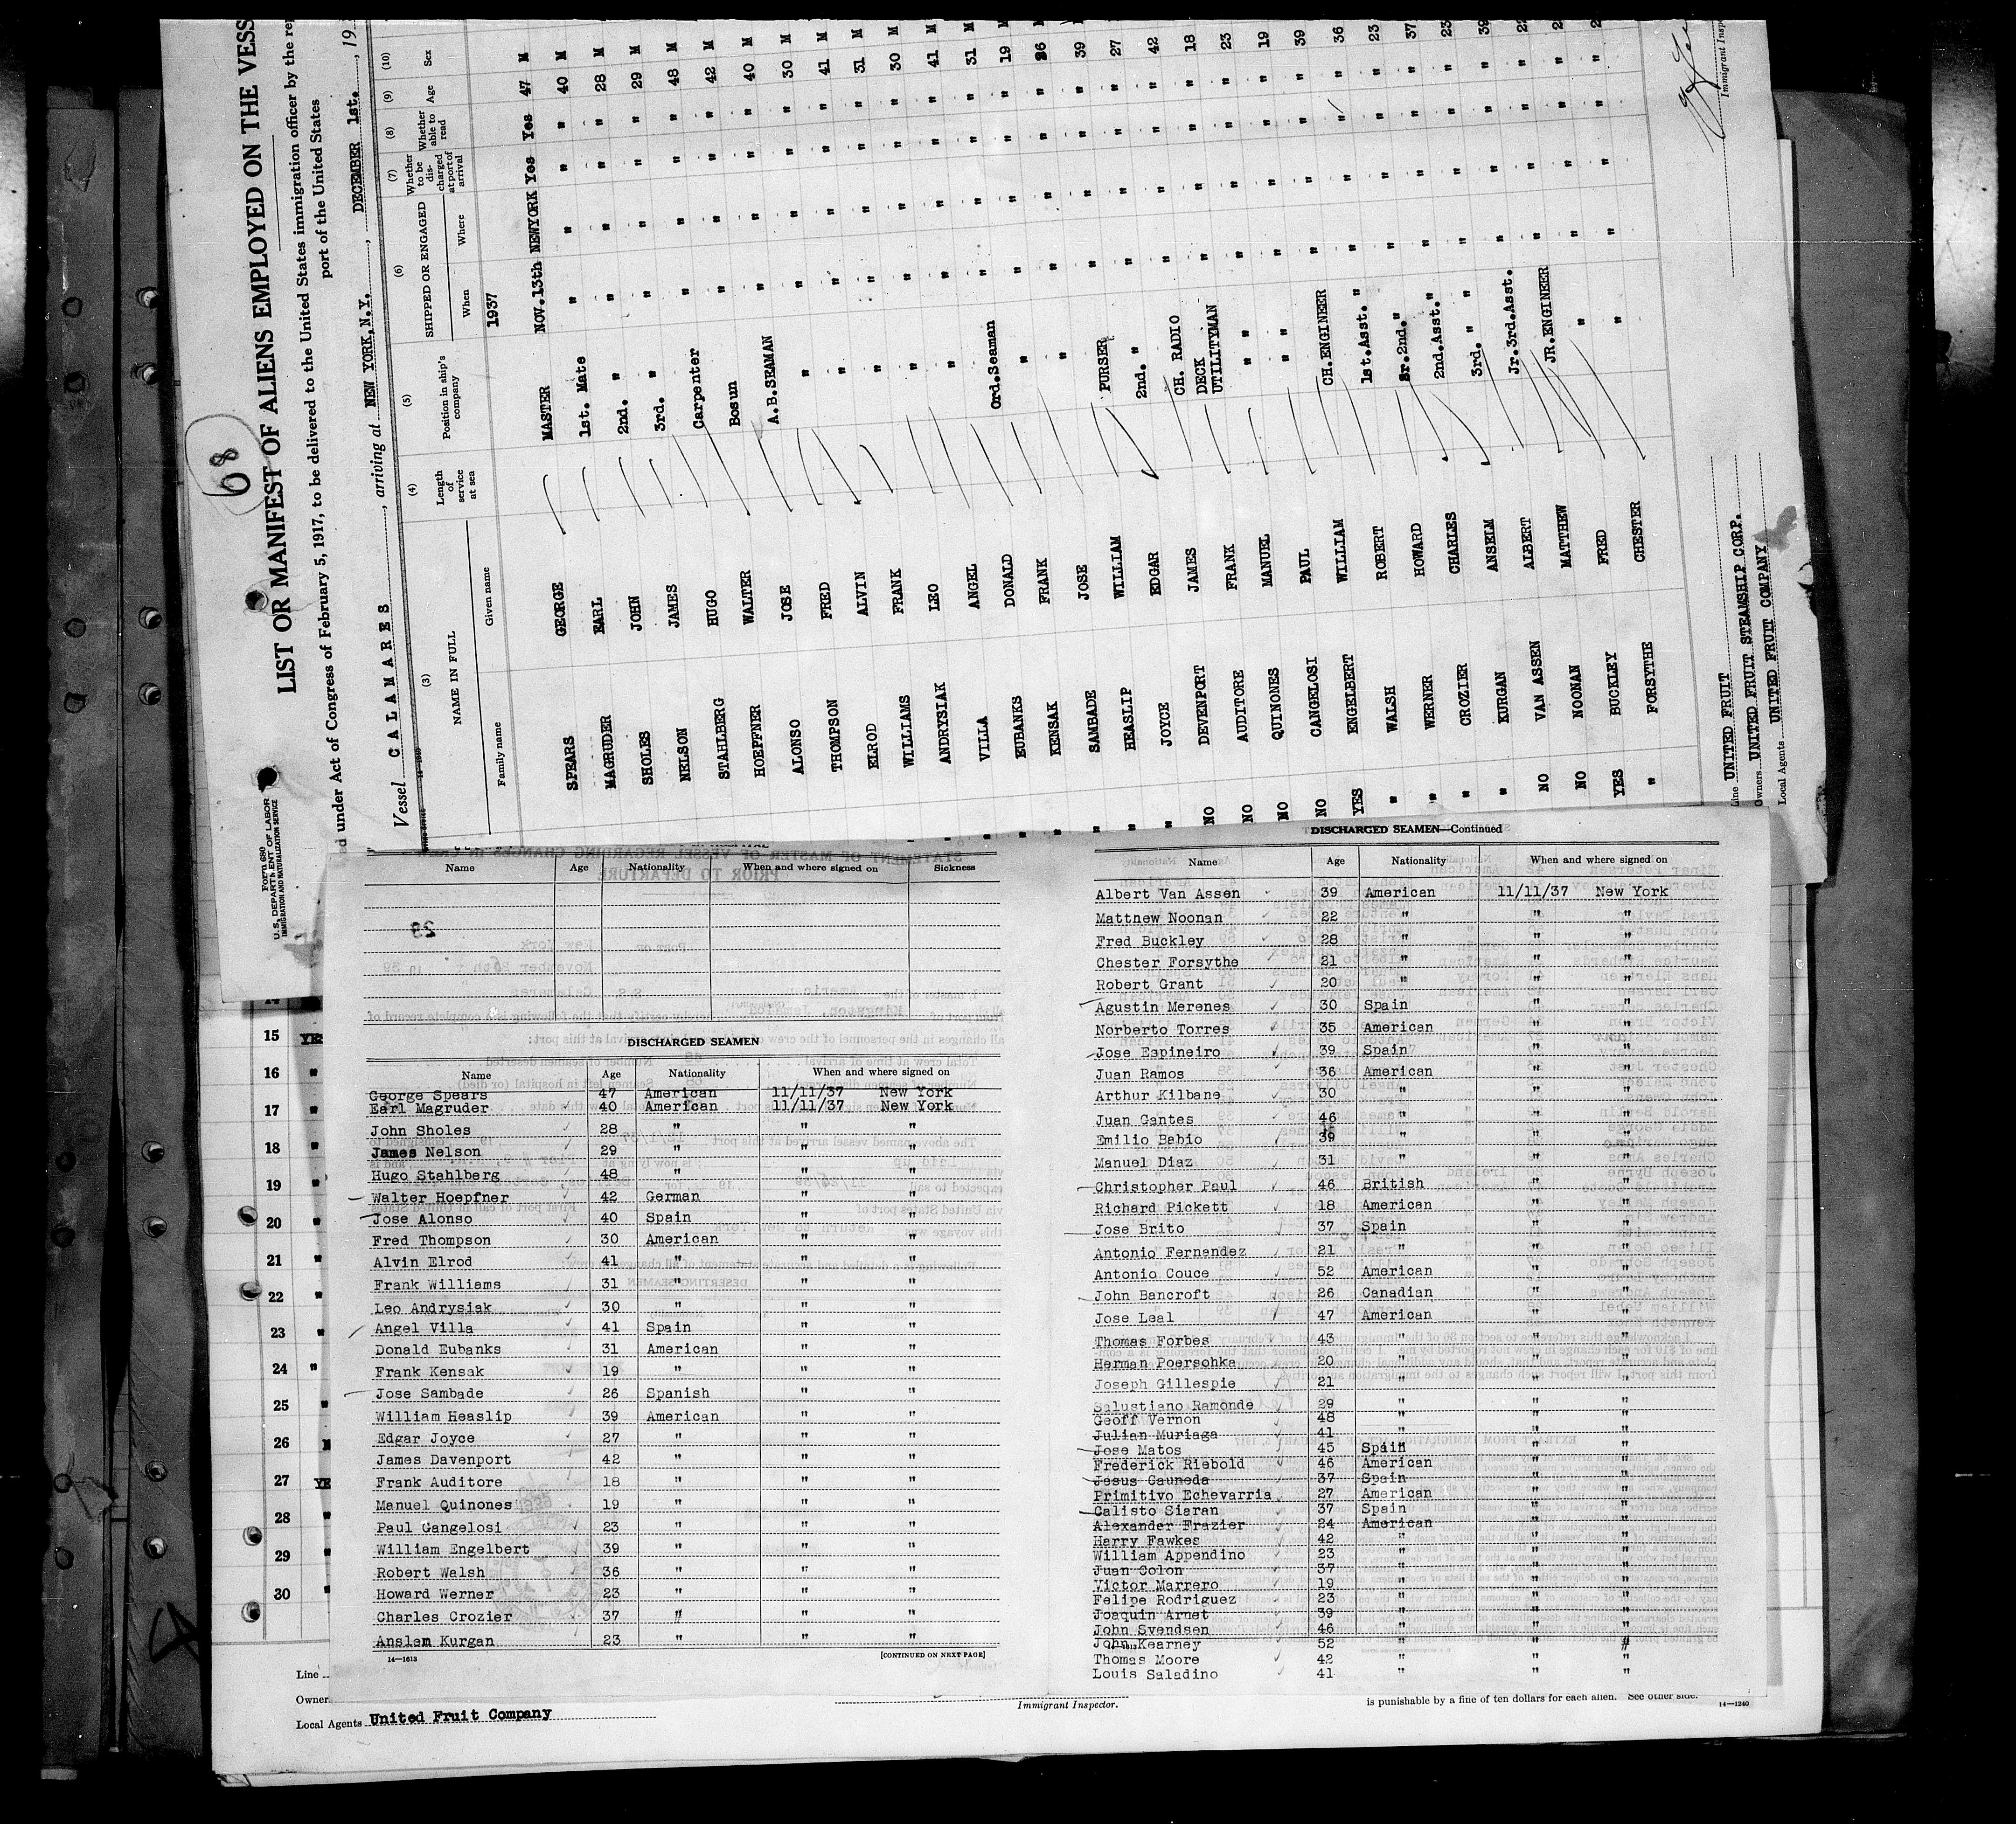 68
Form 680
U.S. DEPARTMENT OF LABOR
IMMIGRATION AND NATURALIZATION SERVICE
LIST OR MANIFEST OF ALIENS EMPLOYED ON THE VESS
d under Act of Congress of February 5, 1917, to be delivered to the United States immigration officer by the rep
port of the United States
Vessel CALAMARES, arriving at NEW YORK, N.Y., DECEMBER 1st., 19
(3) (4) (5) (6) (7) (8) (9) (10)
NAME IN FULL Length of service at sea Position in ship's company SHIPPED OR ENGAGED Whether to be discharged at port of arrival Whether able to read Age Sex
Family name Given name When Where
1937
SPEARS GEORGE MASTER NOV.13th NEWYORK Yes Yes 47 M
MAGRUDER EARL 1st. Mate " " " " 40 M
SHOLES JOHN 2nd. " " " " " 28 M
NELSON JAMES 3rd. " " " " " 29 M
STAHLBERG HUGO Carpenter " " " " 48 M
HOEPFNER WALTER Bosun " " " " 42 M
ALONSO JOSE A.B.SEAMAN " " " " 40 M
THOMPSON FRED " " " " " 30 M
ELROD ALVIN " " " " " 41 M
WILLIAMS FRANK " " " " " 31 M
ANDRYSIAK LEO " " " " " 30 M
VILLA ANGEL " " " " " 41 M
EUBANKS DONALD Ord.Seaman " " " " 31 M
KENSAK FRANK " " " " " 19 M
SAMBADE JOSE " " " " " 26
HEASLIP WILLIAM PURSER " " " " 39
JOYCE EDGAR 2nd. " " " " " 27
DEVENPORT JAMES CH. RADIO " " " " 42
NO AUDITORE FRANK DECK UTILITYMAN " " " " 18
NO QUINONES MANUEL " " " " " 23
NO CANGELOSI PAUL " " " " " 19
NO ENGELBERT WILLIAM CH.ENGINEER " " " " 39
YES WALSH ROBERT 1st.Asst. " " " " " 36
" WERNER HOWARD Sr.2nd." " " " " 23
" CROZIER CHARLES 2nd.Asst." " " " " 37
" KURGAN ANSELM 3rd. " " " " " 23
" VAN ASSEN ALBERT Jr.3rd.Asst. " " " " 39
NO NOONAN MATTHEW JR.ENGINEER " " " " 22
NO BUCKLEY FRED " " " " "
YES FORSYTHE CHESTER " " " " "
"
Line UNITED FRUIT
Owners UNITED FRUIT STEAMSHIP CORP.
Local Agents UNITED FRUIT COMPANY
Immigrant Insp
Name Age Nationality When and where signed on Sickness
DISCHARGED SEAMEN
Name Age Nationality When and where signed on
George Spears 47 American 11/11/37 New York
Earl Magruder 40 American 11/11/37 New York
John Sholes 28 " " "
James Nelson 29 " " "
Hugo Stahlberg 48 " " "
Walter Hoepfner 42 German " "
Jose Alonso 40 Spain " "
Fred Thompson 30 American " "
Alvin Elrod 41 " " "
Frank Williams 31 " " "
Leo Andrysiak 30 " " "
Angel Villa 41 Spain " "
Donald Eubanks 31 American " "
Frank Kensak 19 " " "
Jose Sambade 26 Spanish " "
William Heaslip 39 American " "
Edgar Joyce 27 " " "
James Davenport 42 " " "
Frank Auditore 18 " " "
Manuel Quinones 19 " " "
Paul Gangelosi 23 " " "
William Engelbert 39 " " "
Robert Walsh 36 " " "
Howard Werner 23 " " "
Charles Crozier 37 " " "
Anslem Kurgan 23 " " "
14—1613 [CONTINUED ON NEXT PAGE]
DISCHARGED SEAMEN—Continued
Name Age Nationality When and where signed on
Albert Van Assen 39 American 11/11/37 New York
Mattnew Noonan 22 " " "
Fred Buckley 28 " " "
Chester Forsythe 21 " " "
Robert Grant 20 " " "
Agustin Merenes 30 Spain " "
Norberto Torres 35 American " "
Jose Espineiro 39 Spain " "
Juan Ramos 36 American " "
Arthur Kilbane 30 " " "
Juan Cantes 46 " " "
Emilio Babio 39 " " "
Manuel Diaz 31 " " "
Christopher Paul 46 British " "
Richard Pickett 18 American " "
Jose Brito 37 Spain " "
Antonio Fernandez 21 " " "
Antonio Couce 52 American " "
John Bancroft 26 Canadian " "
Jose Leal 47 American " "
Thomas Forbes 43 " " "
Herman Poersohka 20 " " "
Joseph Gillespie 21 " " "
Salustiano Ramonde 29 " " "
Geoff Vernon 48 " " "
Julian Muriaga 41 " " "
Jose Matos 45 Spain " "
Frederick Riebold 46 American " "
Jesus Cauneda 37 Spain " "
Primitivo Echevarria 27 American " "
Calisto Siaran 37 Spain " "
Alexander Frazier 24 American " "
Harry Fawkes 42 " " "
William Appendino 23 " " "
Juan Colon 37 " " "
Victor Marrero 19 " " "
Felipe Rodriguez 23 " " "
Joaquin Arnet 39 " " "
John Svendsen 46 " " "
John Kearney 52 " " "
Thomas Moore 42 " " "
Louis Saladino 41 " " "
15 YE
16 "
17 "
18 "
19 "
20 "
21 "
22 "
23 "
24 "
25 "
26
27 YE
28 "
29 "
30 "
Line
Owner
Local Agents United Fruit Company
Immigrant Inspector.
is punishable by a fine of ten dollars for each alien. See other side.
14—1240